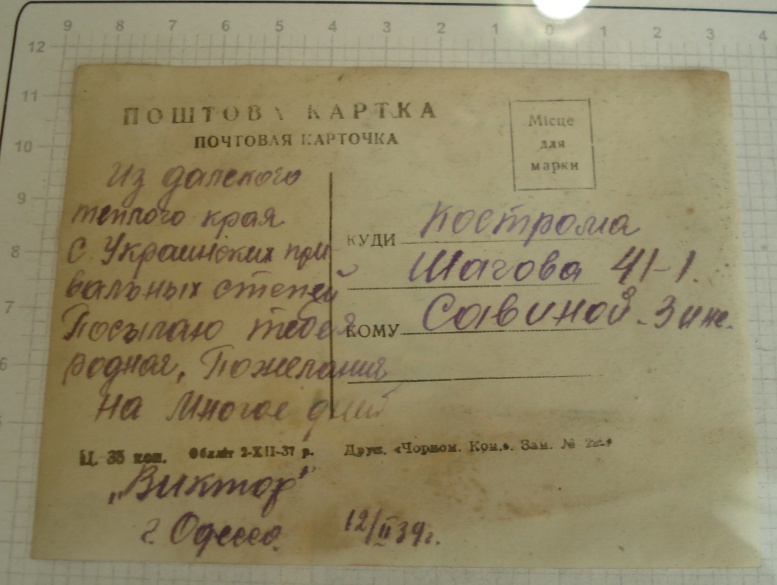 ПОШТОВА КАРТКА
ПОЧТОВАЯ КАРТОЧКА
Місце
для
марки
Из далекого
теплого края
с Украинских при
вальных степей
Посылаю тебе
родная, Пожелания
на многое дней
КУДИ Кострома
Шагова 41-1.
КОМУ Савиной - Зине.
Ц. 35 коп. Обліт 2-XII-37 р. Друк. «Чорном. Ком.». Зам. №
„Виктор"
г. Одесса.
12/II 39г.
9 8 7 6 5 4 3 2 1 0 1 2 3 4
12
11
10
9
8
7
6